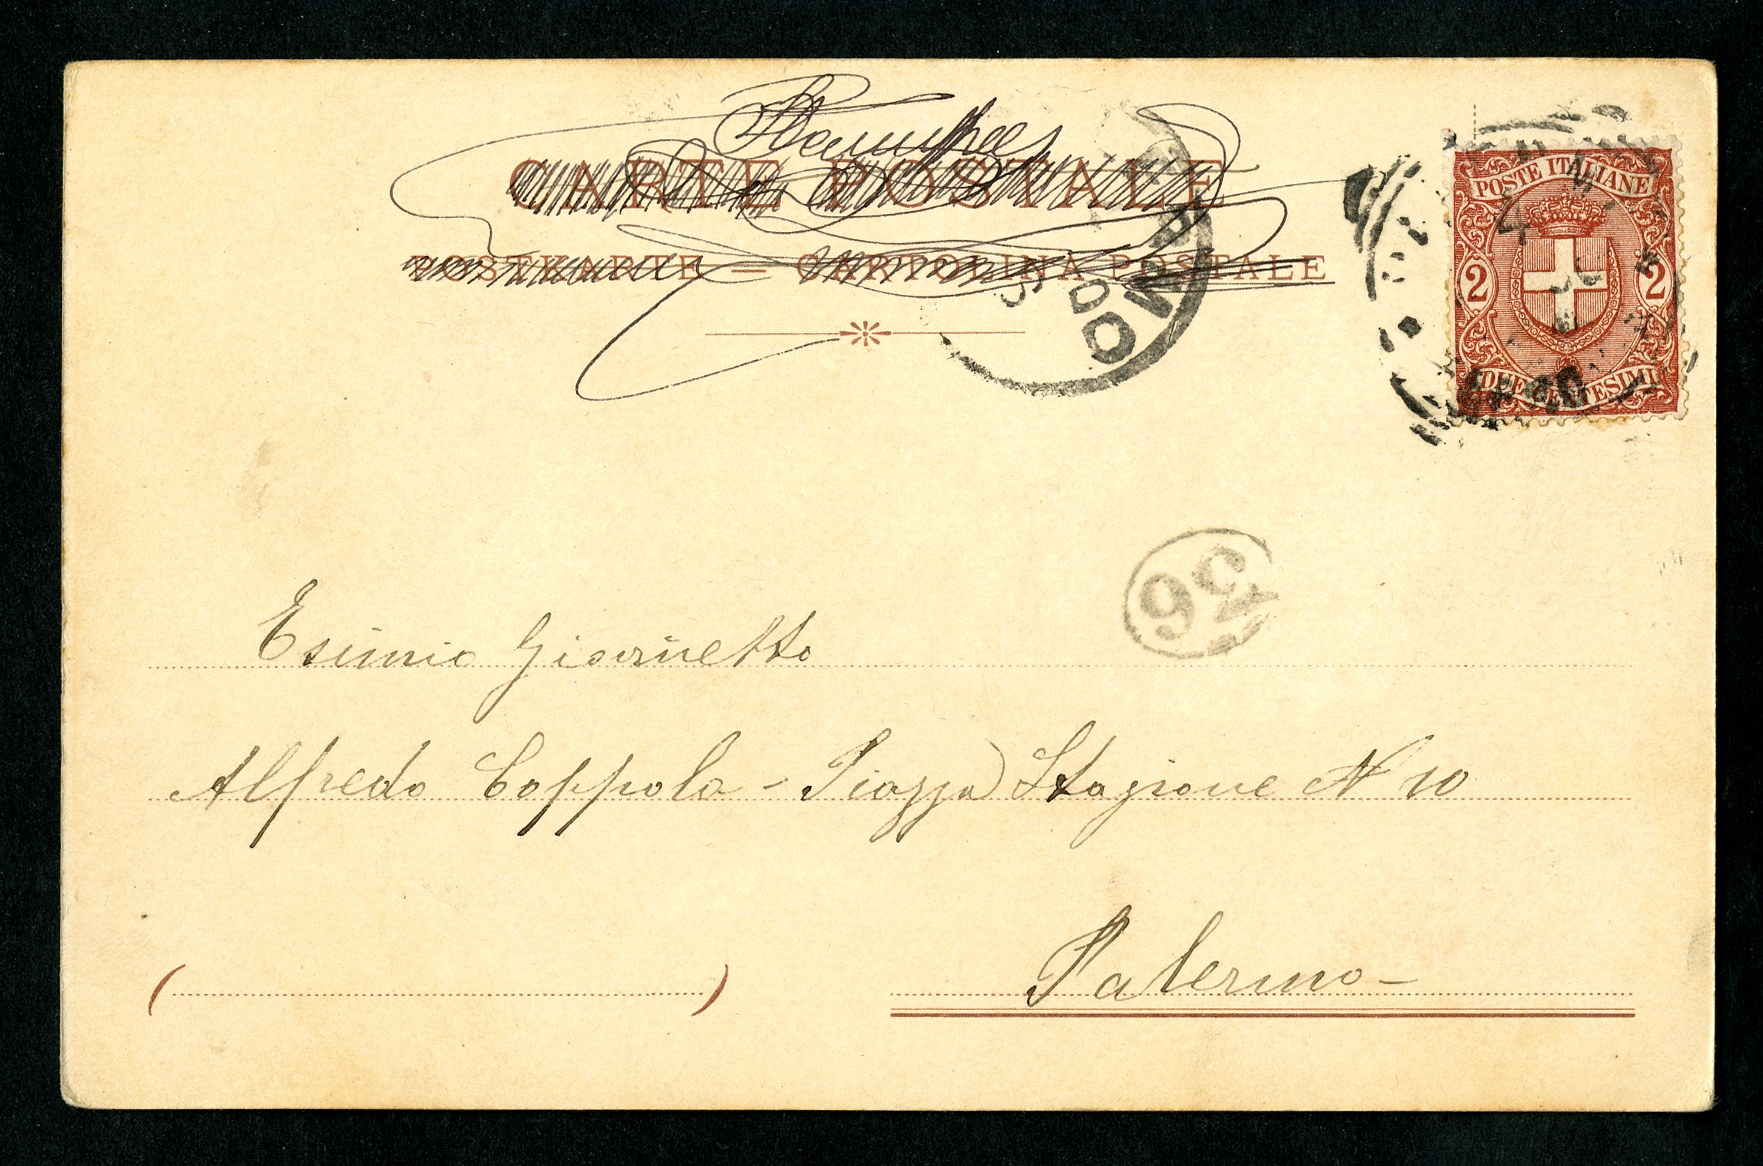 Stampe
CARTE POSTALE
POSTKARTE — CARTOLINA POSTALE
POSTE ITALIANE
2 2
DUE CENTESIMI
36
Esimio Giovinetto
Alfredo Coppola - Piazza Stazione N 10
Palermo -